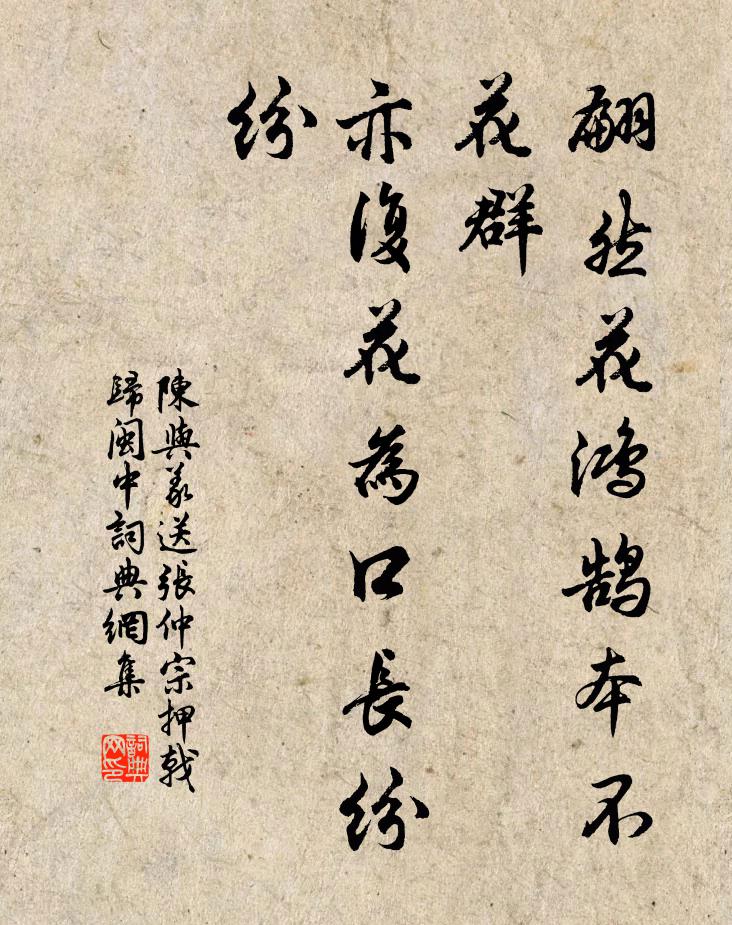 翩然花鴻鵠本不
花群
亦復花為口長紛
紛
陳與義送張仲宗押戟
歸閩中詞典網集
詞典
网印